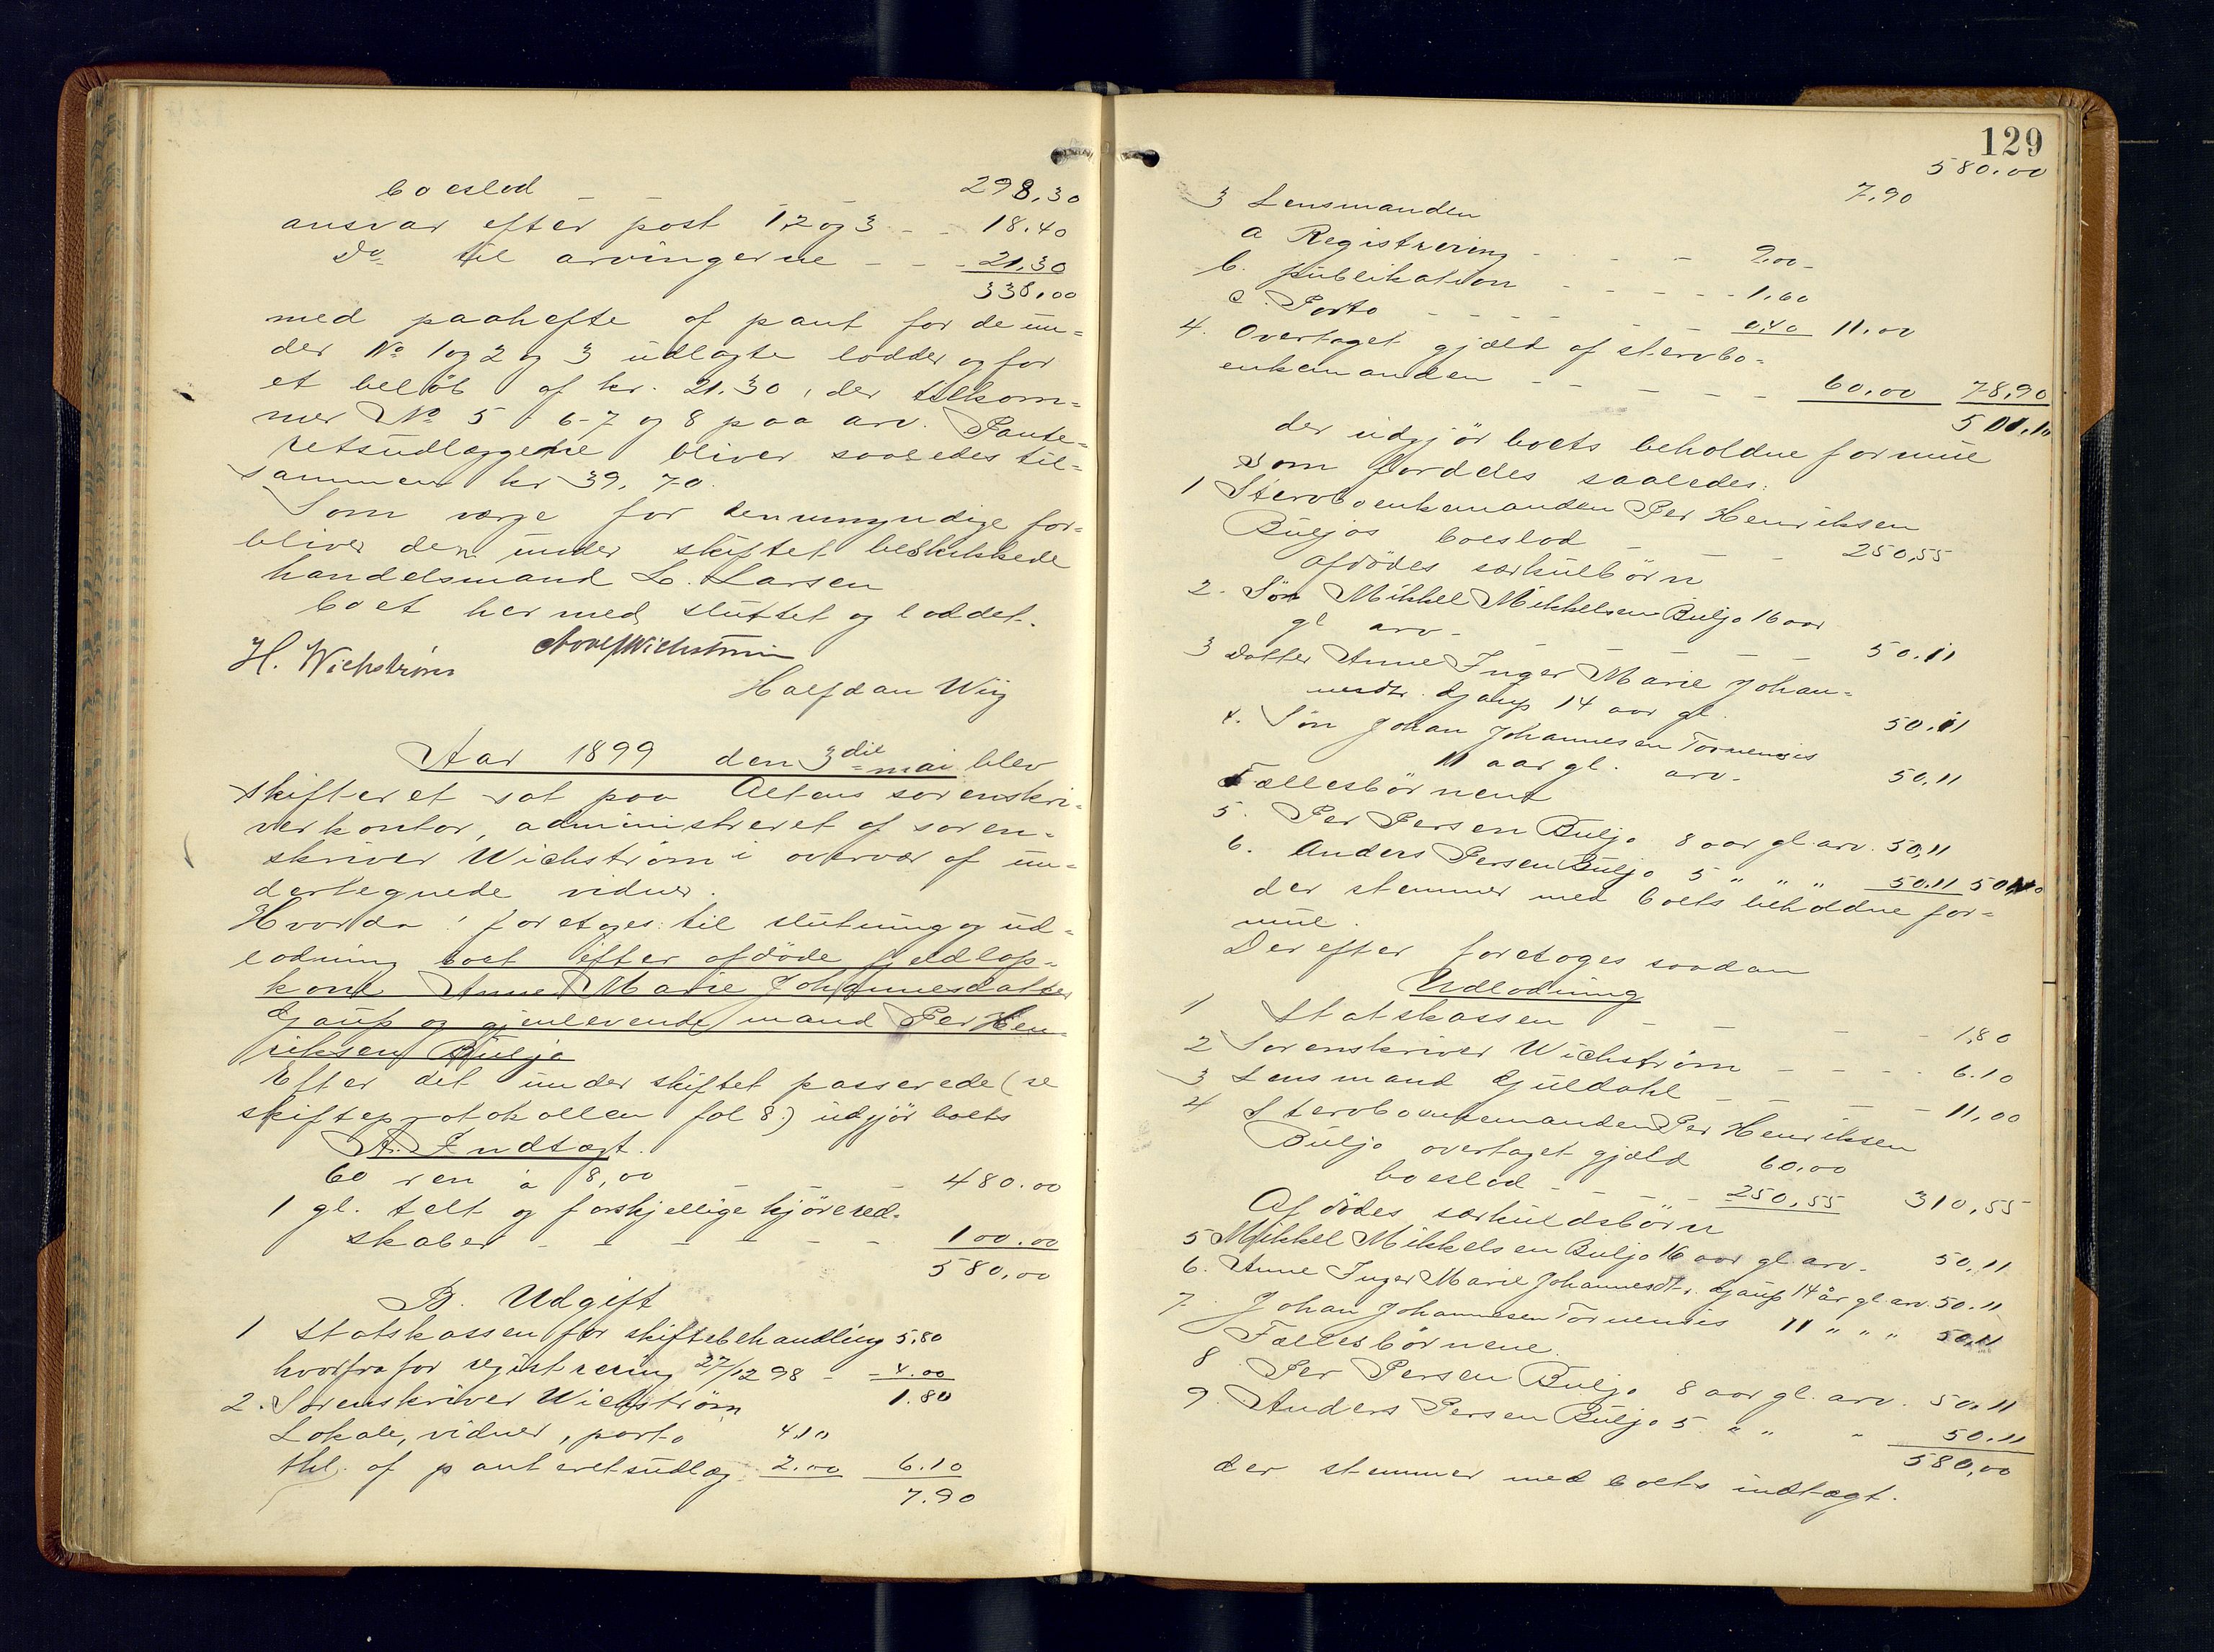 boeslod - 298,30
ansvar efter post 1, 2 og 3 - - 18.40
do til arvingerne - - - 21,30
338,00
med paahefte af pant for de un=
der No 1 og 2 og 3 udlagte lodder og for
et beløb af kr. 21.30, der tilkom=
mer No 5 - 6 - 7 og 8 paa arv. Pante=
retsudlæggene bliver saaledes til=
sammen kr 39,70.
Som værge for den umyndige for=
bliver den under skiftet beskikkede
handelsmand L. Larsen
boet hermed sluttet og loddet.
H. Wichstrøm Adolf Wichstrøm
Halfdan Wiig
Aar 1899 den 3die mai blev
skifteret sat paa Altens sorenskri=
verkontor, administreret af soren=
skriver Wichstrøm i overvær af un=
dertegnede vidner.
Hvorda! foretoges: til slutning og ud=
lodning boet efter afdøde fjeldlap=
kone Anne Marie Johannesdatter
Gaup og gjenlevende mand Per Hen=
riksen Buljo
Efter det under skiftet passerede (se
skifteprotokollen fol 8) udgjør boets
A. Indtægt.
60 ren à 8,00 - - - 480.00
1 gl. telt og forskjellige kjørered=
skaber - - - - - 100.00
580,00
B. Udgift
1 Statskassen for skiftebehandling 5.80
hvorfra for registrering 27/12 98 - - 4.00
1.80
2. Sorenskriver Wichstrøm
Lokale, vidner, porto 4.10
thl. af panteretsudlæg 2.00 6.10
7.90
129
580.00
7,90
3 Lensmanden
a Registrering - - - - 9.00 -
b. publikation - - - - - 1.60
c. Porto - - - - - 0,40 11.00
4. Overtaget gjæld af stervbo=
enkemanden - - - - - 60.00 78,90
501,10
der udgjør boets beholdne formue
som fordeles saaledes:
1 Stervboenkemanden Per Henriksen
Buljos boeslod - - - 250,55
afdødes særkulbørn
2. Søn Mikkel Mikkelsen Buljo 16 aar
gl arv - - - - - 50.11
3 datter Anne Inger Marie Johan=
nesdtr. Gaup 14 aar gl. 50.11
4. Søn Johan Johannesen Tornensis
11 aar gl. arv - 50,11
Fællesbørnene
5. Per Persen Buljo 8 aar gl. arv. 50,11
6. Anders Persen Buljo 5 " " " 50.11 501,10
der stemmer med boets beholdne for=
mue.
Derefter foretoges saadan
Udlodning
1 Statskassen - - - - 1,80
2 Sorenskriver Wichstrøm - - - - 6.10
3 Lensmand Guldahl - - - - 11,00
4 Stervboenkemanden Per Henriksen
Buljo overtaget gjæld 60.00
boeslod - - - - 250,55 310,55
Afdødes særkuldsbørn
5 Mikkel Mikkelsen Buljo 16 aar gl. arv. 50,11
6. Anne Inger Marie Johannesdtr. Gaup 14 år gl. arv. 50.11
7. Johan Johannesen Tornensis 11 " " " 50,11
Fællesbørnene.
8. Per Persen Buljo 8 aar gl. arv. 50.11
9. Anders Persen Buljo 5 " " " 50.11
580,00
der stemmer med boets indtægt.